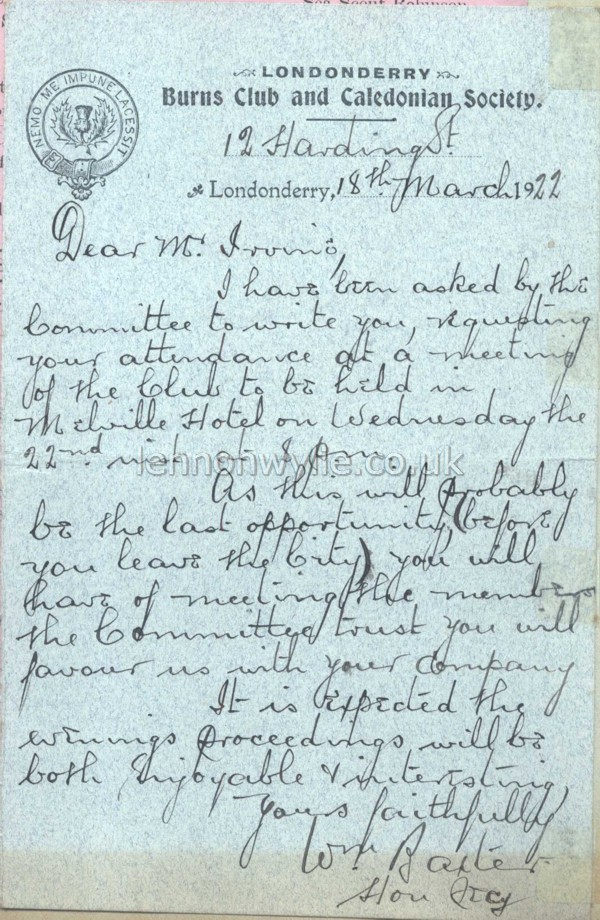 Sea Scout Robinson
LONDONDERRY
Burns Club and Caledonian Society.
NEMO ME IMPUNE LACESSIT
12 Harding St.
Londonderry, 18th March 1922
Dear Mr. Irvine,
I have been asked by the
Committee to write you, requesting
your attendance at a meeting
of the Club to be held in
Melville Hotel on Wednesday the
22nd inst. at 8 p.m.
lennonwylie.co.uk
As this will probably
be the last opportunity (before
you leave the City) you will
have of meeting the members
the Committee trust you will
favour us with your company
It is expected the
evenings proceedings will be
both enjoyable & interesting,
Yours faithfully
Wm. Baxter
Hon Secy